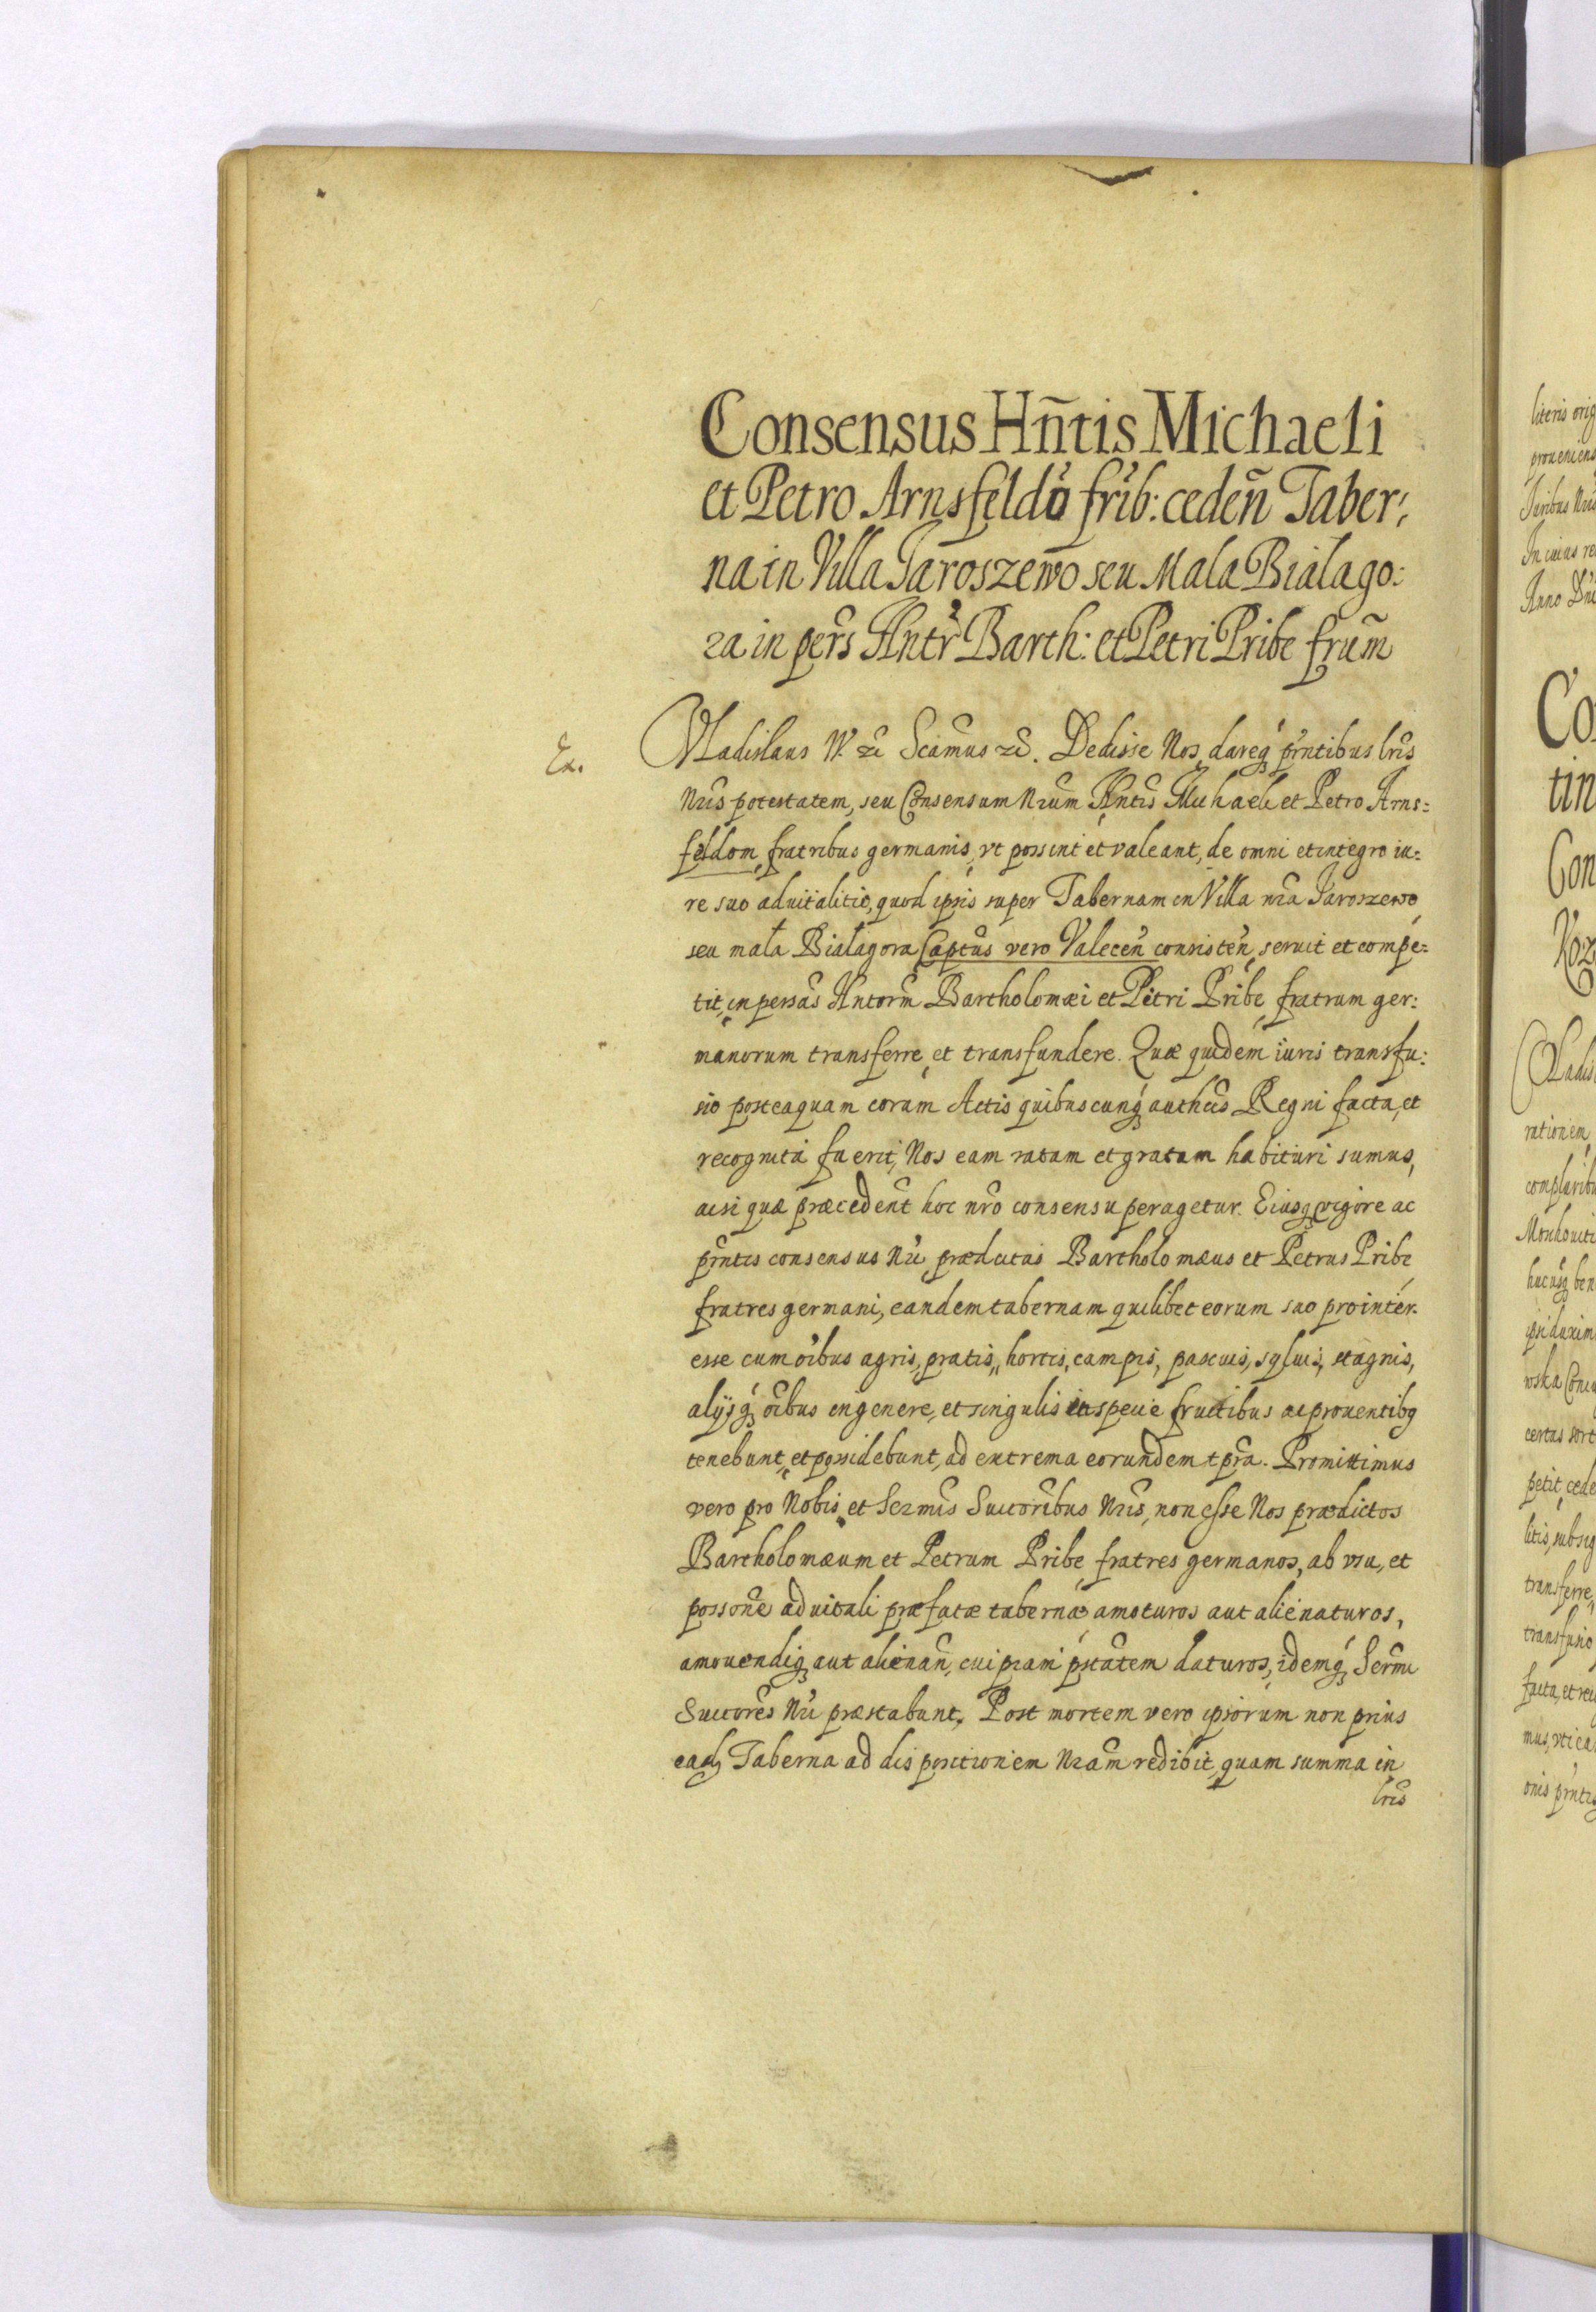 Consensus Hn̄tis Michaeli
et Petro Arnsfeldõ frib: ceden̄ Taber,
na in Villa Jaroszewo seu Mała Białago:
ra in pers Hntr Barth: et Petri Pribe frum̄
Ex.
Vladislaus IV. etc Sciamus etc. Dedisse Nos, dareq́ꝫ prn̄tibus lris
Nris potestatem, seu Consensum Nrum Hntis Michaeli et Petro Arns=
feldom fratribus germanis, vt possint et valeant, de omni et integro iu=
re suo aduitalitio, quod ipsis super Tabernam in Villa nra Jaroszewo
seu mała Białagora Captus vero Valecen̄ consisten̄, seruit et compe=
tit, in persas Hntorm̄ Bartholomæi et Petri Pribe, fratrum ger:
manorum transferre, et transfundere. Quæ quidem iuris transfu:
sio posteaquam coram Actis quibuscunq́ꝫ authcis Regni facta, et
recognita fuerit, Nos eam ratam et gratam habituri sumus,
acsi quæ præceden̄t hoc nr̃o consensu peragetur. Eiusqꝫ vigore ac
prn̄tis consensus Nri prædictus Bartholomæus et Petrus Pribe
fratres germani, eandem tabernam quilibet eorum suo pro inter-
esse cum oĩbus agris, pratis, hortis, campis, pascuis, syluis, stagnis,
alijsq́ꝫ oĩbus in genere, et singulis in specie fructibus ac prouentibꝫ
tenebunt, et possidebunt, ad extrema eorundem tpra. Promittimus
vero pro Nobis et Sermis Succoribus Nris, non esse Nos prædictos
Bartholomæum et Petrum Pribe fratres germanos, ab vsu, et
possone aduitali præfatæ tabernæ amoturos aut alienaturos,
amouendiqꝫ aut alienan̄, cuipiam ptatem daturos, idemq́ꝫ Sermi
Succores Nri præstabunt. Post mortem vero ipsorum non prius
eadꝫ Taberna ad dispositionem Nram redibit, quam summa in
lris
literis orig
proueniens
Juribus Nris
In cuius re
Anno Dni
Co
tin
Con
Koz
Vladis
rationem
hucusqꝫ ben
certas sort
petit, cede
litis, subseq
transferre,
transfusio
facta, et rec
mus, vti ea
onis prntis